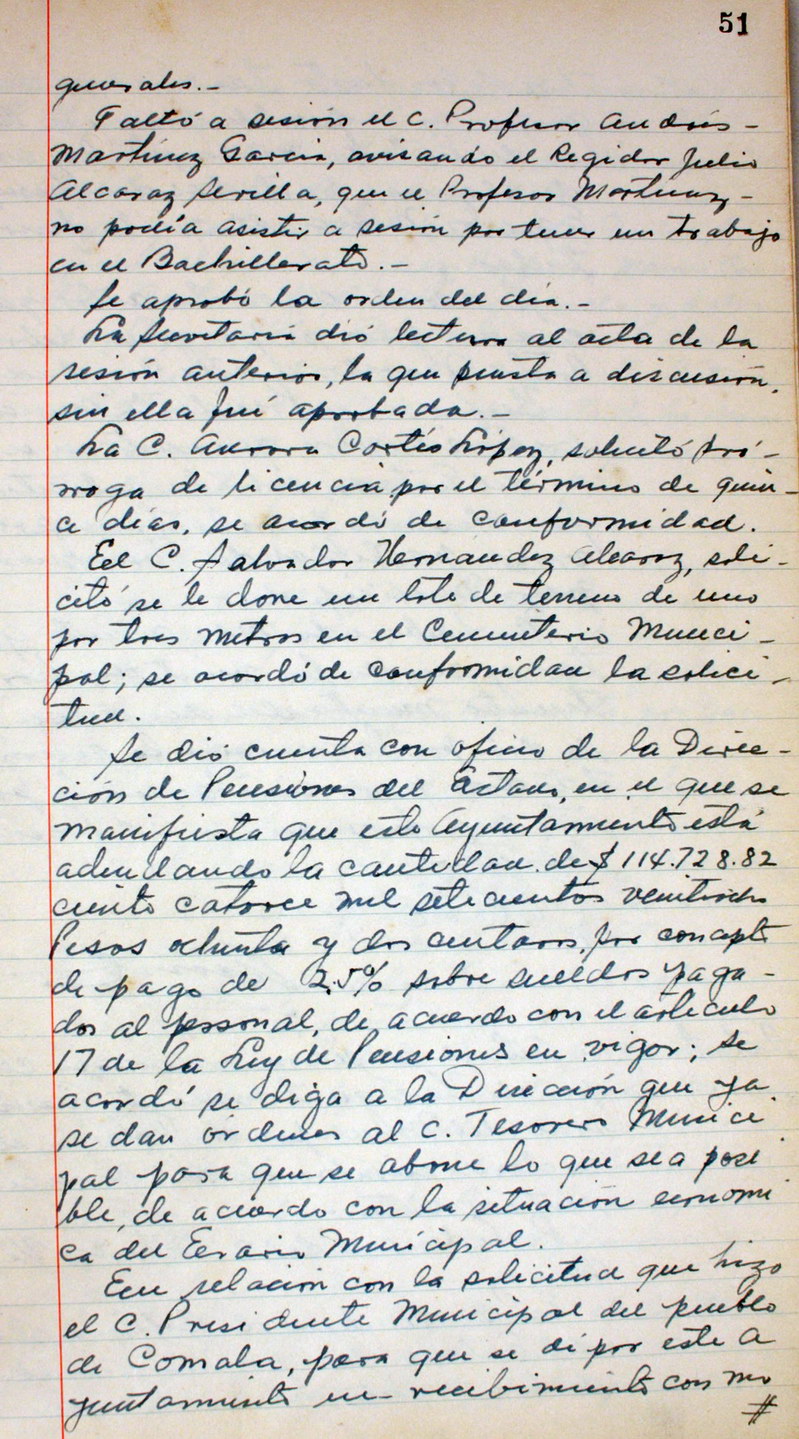 51
generales.-
Faltó a sesión el C. Profesor Andrés-
Martínez García, avisando el Regidor Julio
Alcaraz Sevilla, que el Profesor Martínez-
no podía asistir a sesión por tener un trabajo
en el Bachillerato.-
Se aprobó la orden del día.-
La Secretaria dió lectura al acta de la
sesión anterior, la que puesta a discusión,
sin ella fué aprobada.-
La C. Aurora Cortés López, solicitó pró-
rroga de licencia por el término de quin-
ce días, se acordó de conformidad.
El C. Salvador Hernández Alcaraz, soli-
citó se le done un lote de terreno de uno
por tres metros en el Cementerio Munici-
pal; se acordó de conformidad la solici-
tud.
Se dió cuenta con oficio de la Direc-
ción de Pensiones del Estado, en el que se
manifiesta que este Ayuntamiento está
adeudando la cantidad de $ 114.728.82
ciento catorce mil setecientos veintiocho
Pesos ochenta y dos centavos, por concepto
de pago de 2.5% sobre sueldos paga-
dos al personal, de acuerdo con el artículo
17 de la Ley de Pensiones en vigor; se
acordó se diga a la Dirección que ya
se dan órdenes al C. Tesorero Munici
pal para que se abone lo que sea posi
ble, de acuerdo con la situación económi
ca del Erario Municipal.
En relación con la solicitud que hizo
el C. Presidente Municipal del pueblo
de Comala, para que se dé por este A
yuntamiento un recibimiento con mo
#